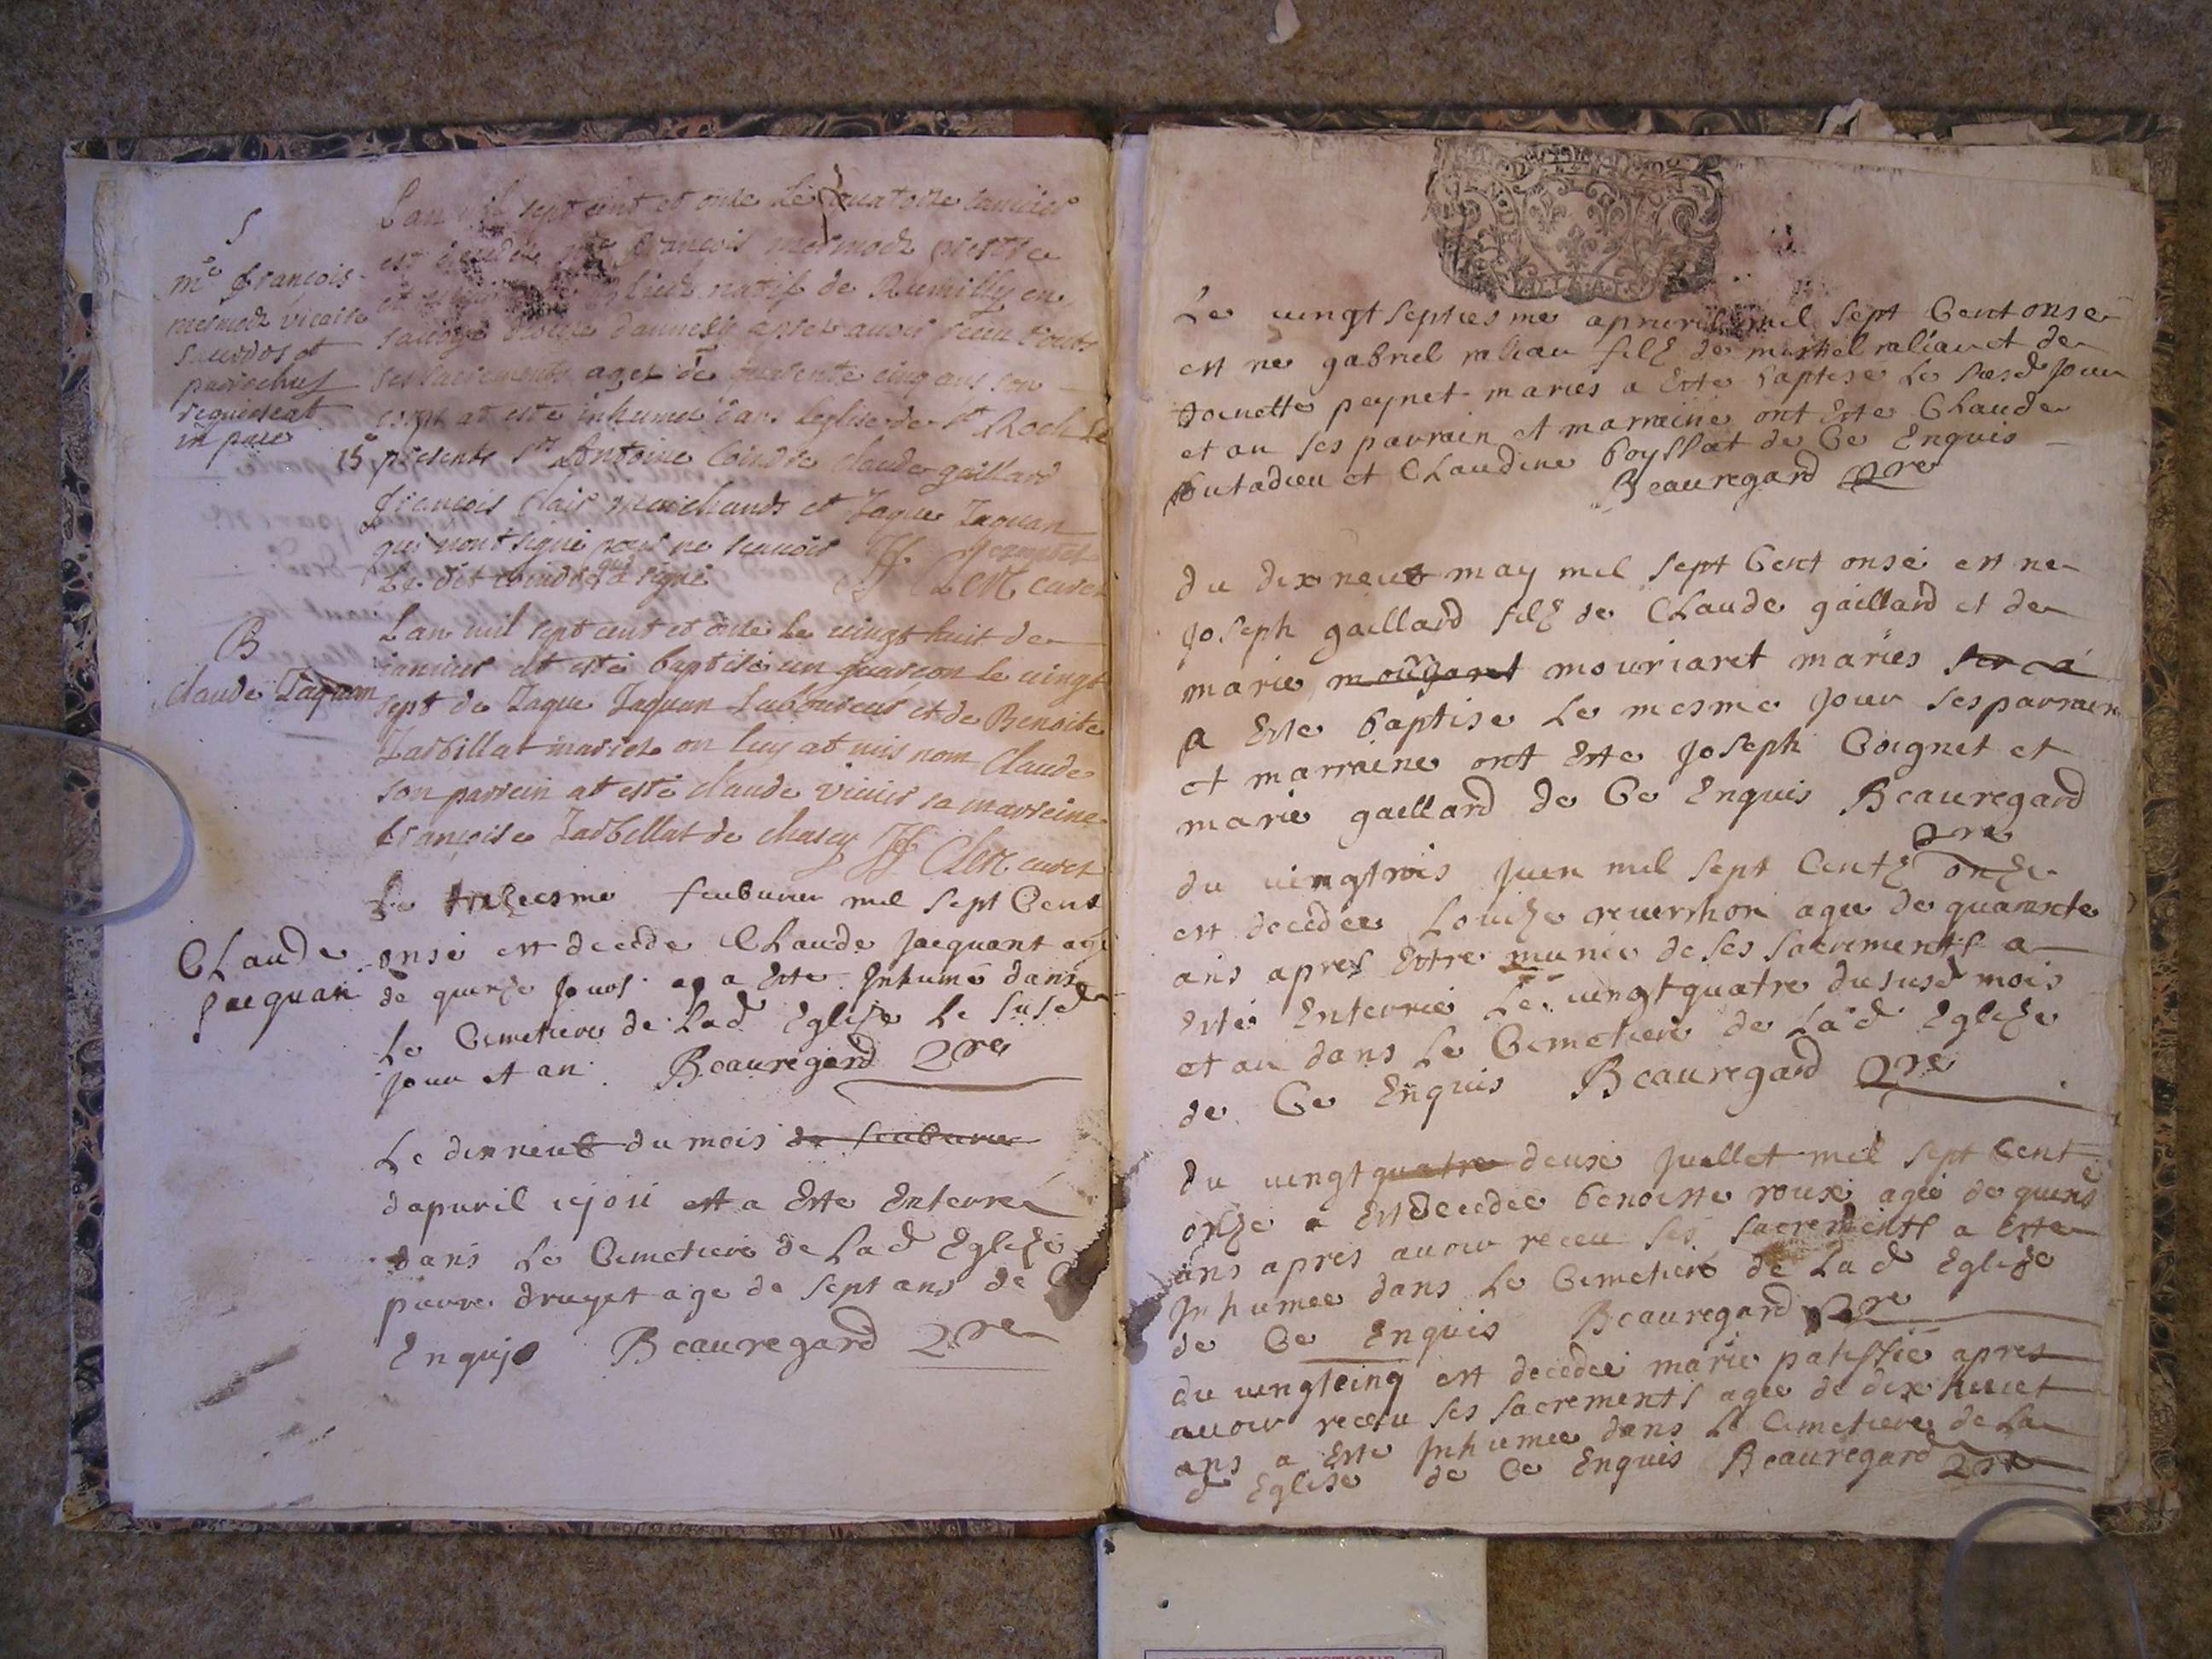 S
me francois
mermoch vicaire
sacerdos et
parrochus
requiescat
in pace
L'an mil sept cent et onze le quatorze ianvier
est decede me francois mermoch prestre
et natif de Rumilly en
savoye d'annessy apres avoir receu touts
ses sacrements agez de quarente cinq ans son
corps at esté inhumé dans leglise de st Roch le
15e presents sr Antoine Coindre claude gaillard
françois clair marchands et Jaque Jaquan
qui n'ont signé pour ne scauoir
Le dit coindre qui a signé Clerc curez
B
claude Jaquan
L'an mil sept cent et onze le vingt huit de
ianvier at esté baptisé un guarcon le vingt
sept de Jaque Jaquan Laboureur et de Benoite
Jarbillat mariez on luy at mis nom Claude
son parrein at esté claude vivier sa marreine
françoise Jarbillat de chasey Clerc curez
Claude
Jacquan
Le trezeesme feuburier mil sept Cent
onse est decede Claude Jacquant agé
de quinze Jours et a Este Inhumé dans
Le Cemetiere de Lad Eglize Le susd
Jour et an. Beauregard ptre
Le dixneuf du mois de feuburier
dapuril 1711 est a Este Enterré
dans Le Cemetiere de Lad Eglize
pierre druget age de sept ans de Ce
Enquis Beauregard ptre
Le uingtseptiesme apuril mil sept Cent onse
est ne gabriel raliau filz de michel raliau et de
Jacnette peynet maries a Este baptise Le susd Jour
et an ses parrain et marraine ont Este Claude
butadieu et Claudine boyssat de Ce Enquis
Beauregard ptre
du dixneuf may mil sept Cent onse est ne
Joseph gaillard filz de Claude gaillard et de
marie mourgaret mouriaret maries
a Este baptise Le mesme Jour ses parrain
et marraine ont Este Joseph Coignet et
marie gaillard de Ce Enquis Beauregard
ptre
du uingtrois Juin mil sept Centz onze
est decedée Louize reuerchon agee de quarante
ans apres Estre munie de ses sacrements a
Esté Enterrée Le uingtquatre du susd mois
et an dans Le Cemetiere de Lad Eglize
de Ce Enquis Beauregard ptre
du uingtquatre deuxe Juillet mil sept Cent
onze a Est decedee benoitte roux agée de quinse
ans apres auoir receu ses sacrements a Este
Inhumee dans Le Cemetiere de Lad Eglize
de Ce Enquis Beauregard ptre
du uingtcinq est decedée marie patissié apres
auoir receu ses sacrements agee de dix huict
ans a Este Inhumee dans Le Cemetiere de La
d Eglise de Ce Enquis Beauregard ptre